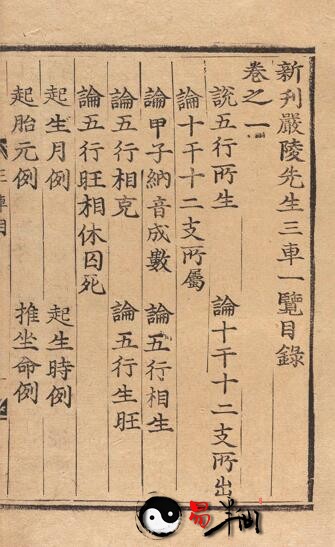 新刋嚴陵先生三車一覽目錄
卷之一
說五行所生　論十干十二支所出
論十干十二支所屬
論甲子納音成數　論五行相生
論五行相克　論五行生旺
論五行旺相休囚死
起生月例　起生時例
起胎元例　推坐命例
易半仙